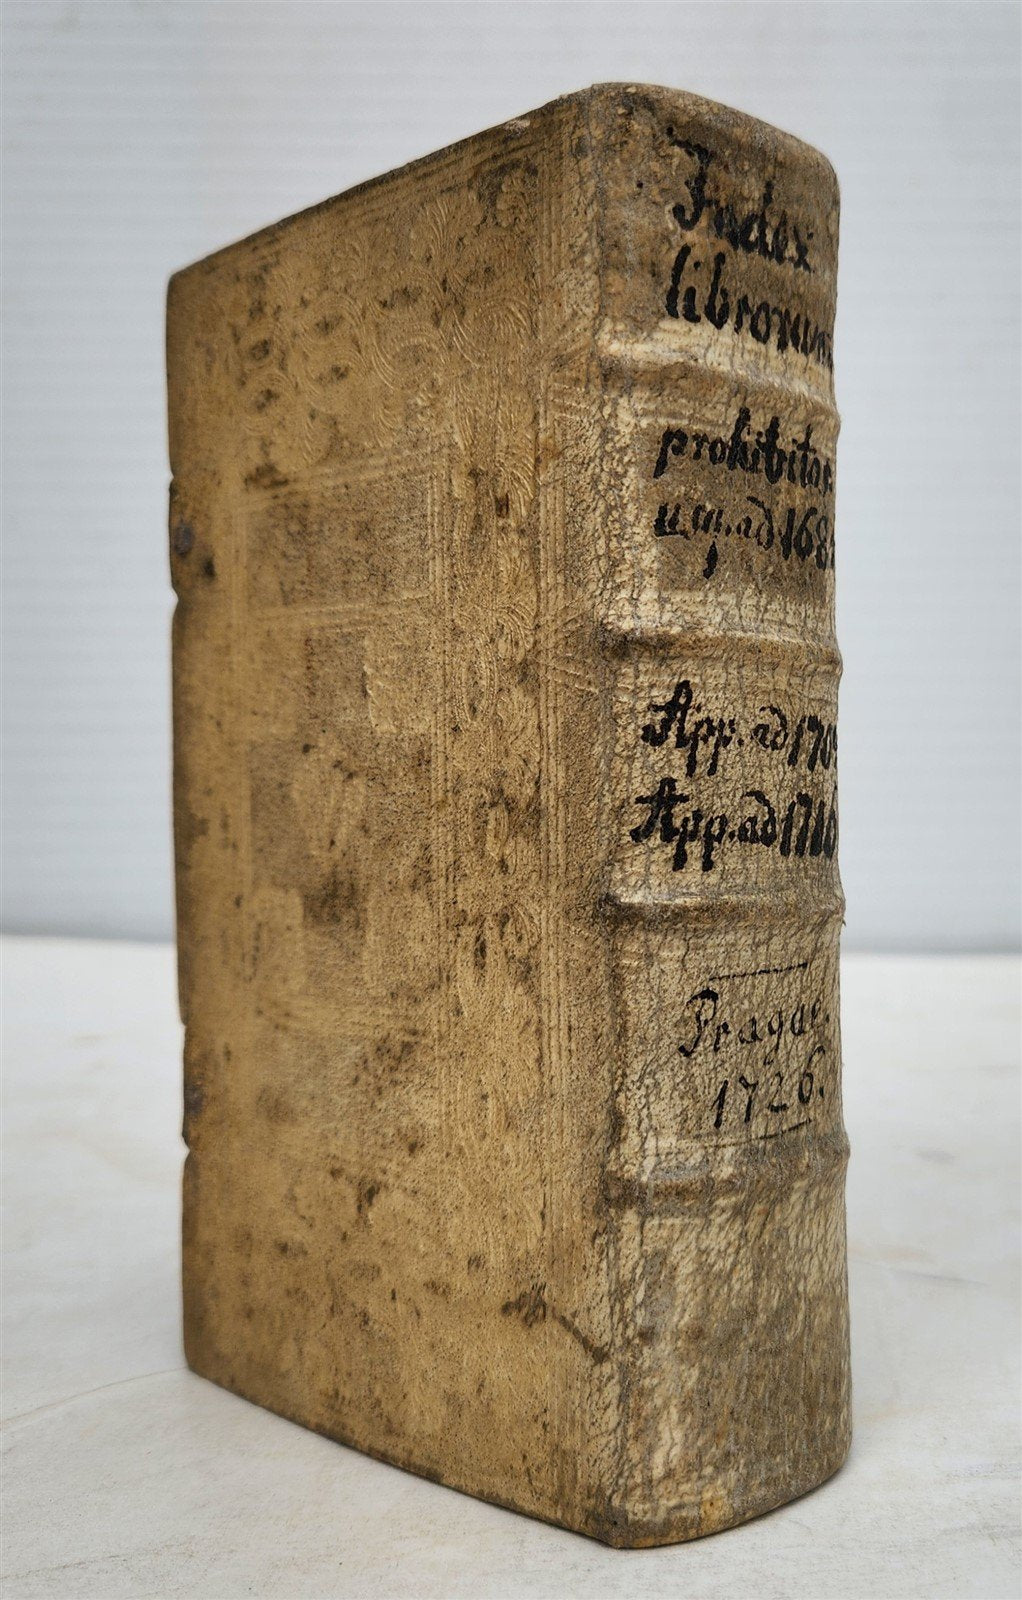 Index
librorum
prohibitor.
usq. ad 168
App. ad 1709
App. ad 1716
Pragae.
1726.